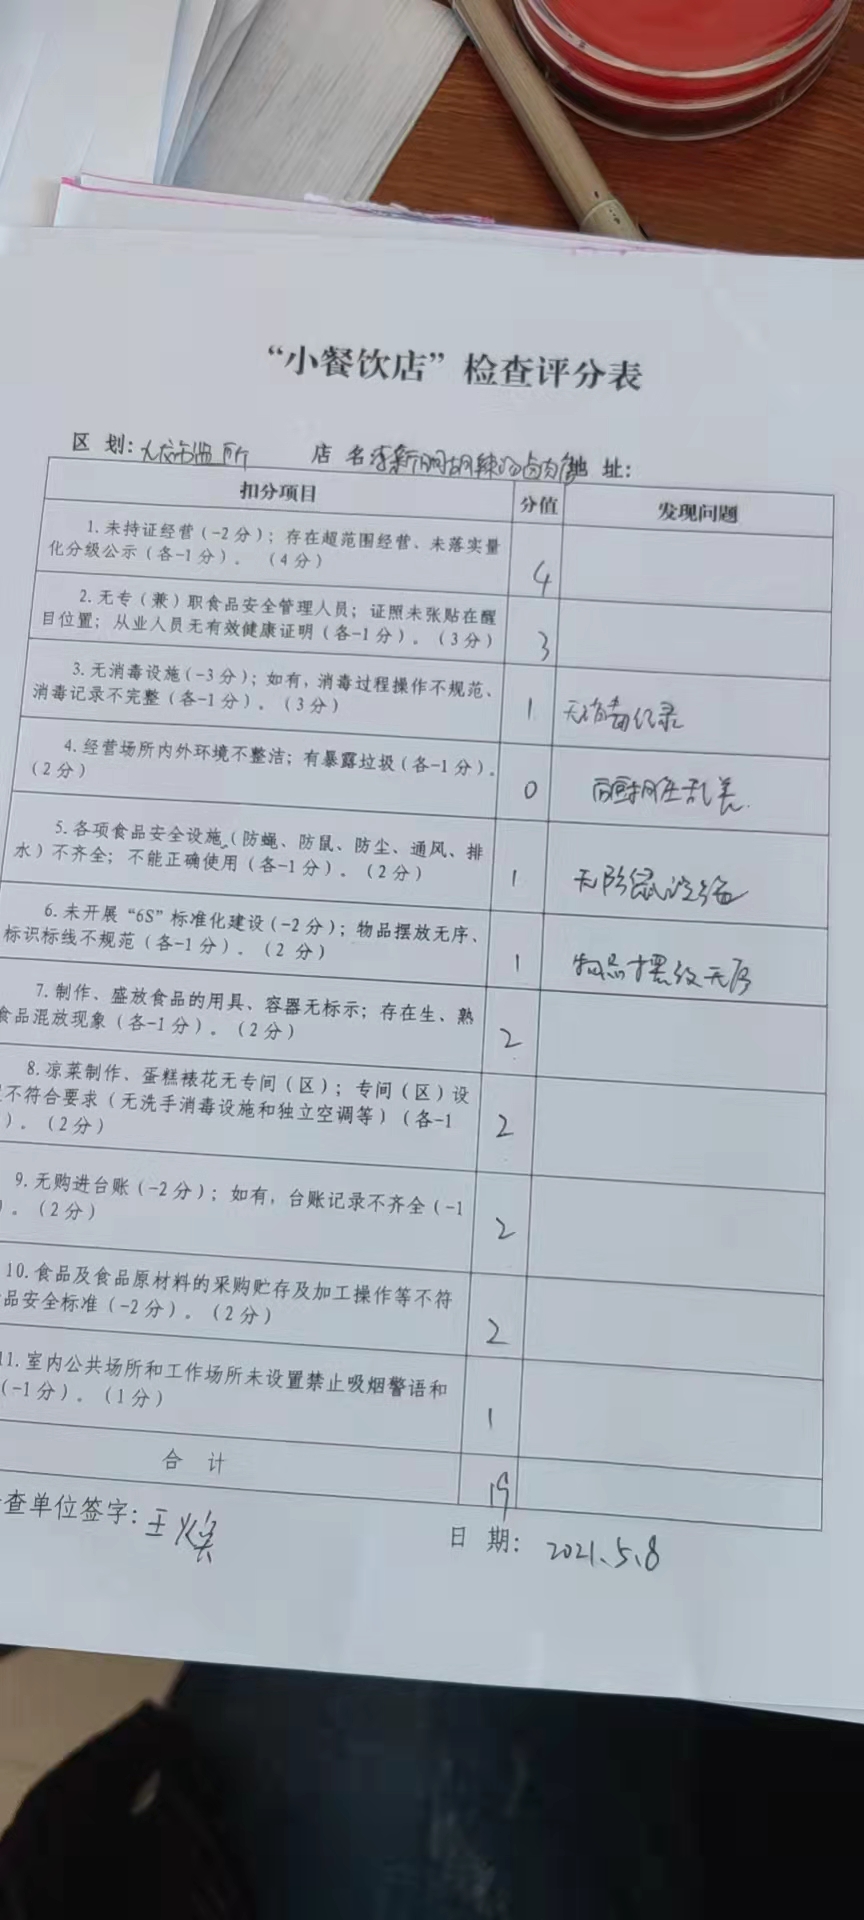 “小餐饮店”检查评分表
区 划: 市监所 店 名 李新丽胡辣汤卤肉 地 址:
扣分项目 分值 发现问题
1.未持证经营(-2分); 存在超范围经营、未落实量
化分级公示(各-1分)。(4分)
4
2.无专(兼)职食品安全管理人员; 证照未张贴在醒
目位置; 从业人员无有效健康证明(各-1分)。(3分)
3
3.无消毒设施(-3分); 如有, 消毒过程操作不规范、
消毒记录不完整(各-1分)。(3分)
1 无消毒记录
4.经营场所内外环境不整洁; 有暴露垃圾(各-1分)。
(2分)
0 脏乱差.
5.各项食品安全设施(防蝇、防鼠、防尘、通风、排
水)不齐全; 不能正确使用(各-1分)。(2分)
1 无防鼠设备
6.未开展“6S”标准化建设(-2分); 物品摆放无序、
标识标线不规范(各-1分)。(2分)
1 物品摆放无序
7.制作、盛放食品的用具、容器无标示; 存在生、熟
食品混放现象(各-1分)。(2分)
2
8.凉菜制作、蛋糕裱花无专间(区); 专间(区)设
不符合要求(无洗手消毒设施和独立空调等)(各-1
)。(2分)
2
9.无购进台账(-2分); 如有, 台账记录不齐全(-1
)。(2分)
2
10.食品及食品原材料的采购贮存及加工操作等不符
品安全标准(-2分)。(2分)
2
11.室内公共场所和工作场所未设置禁止吸烟警语和
(-1分)。(1分)
1
合 计 19
查单位签字: 王焕 日 期: 2021.5.8